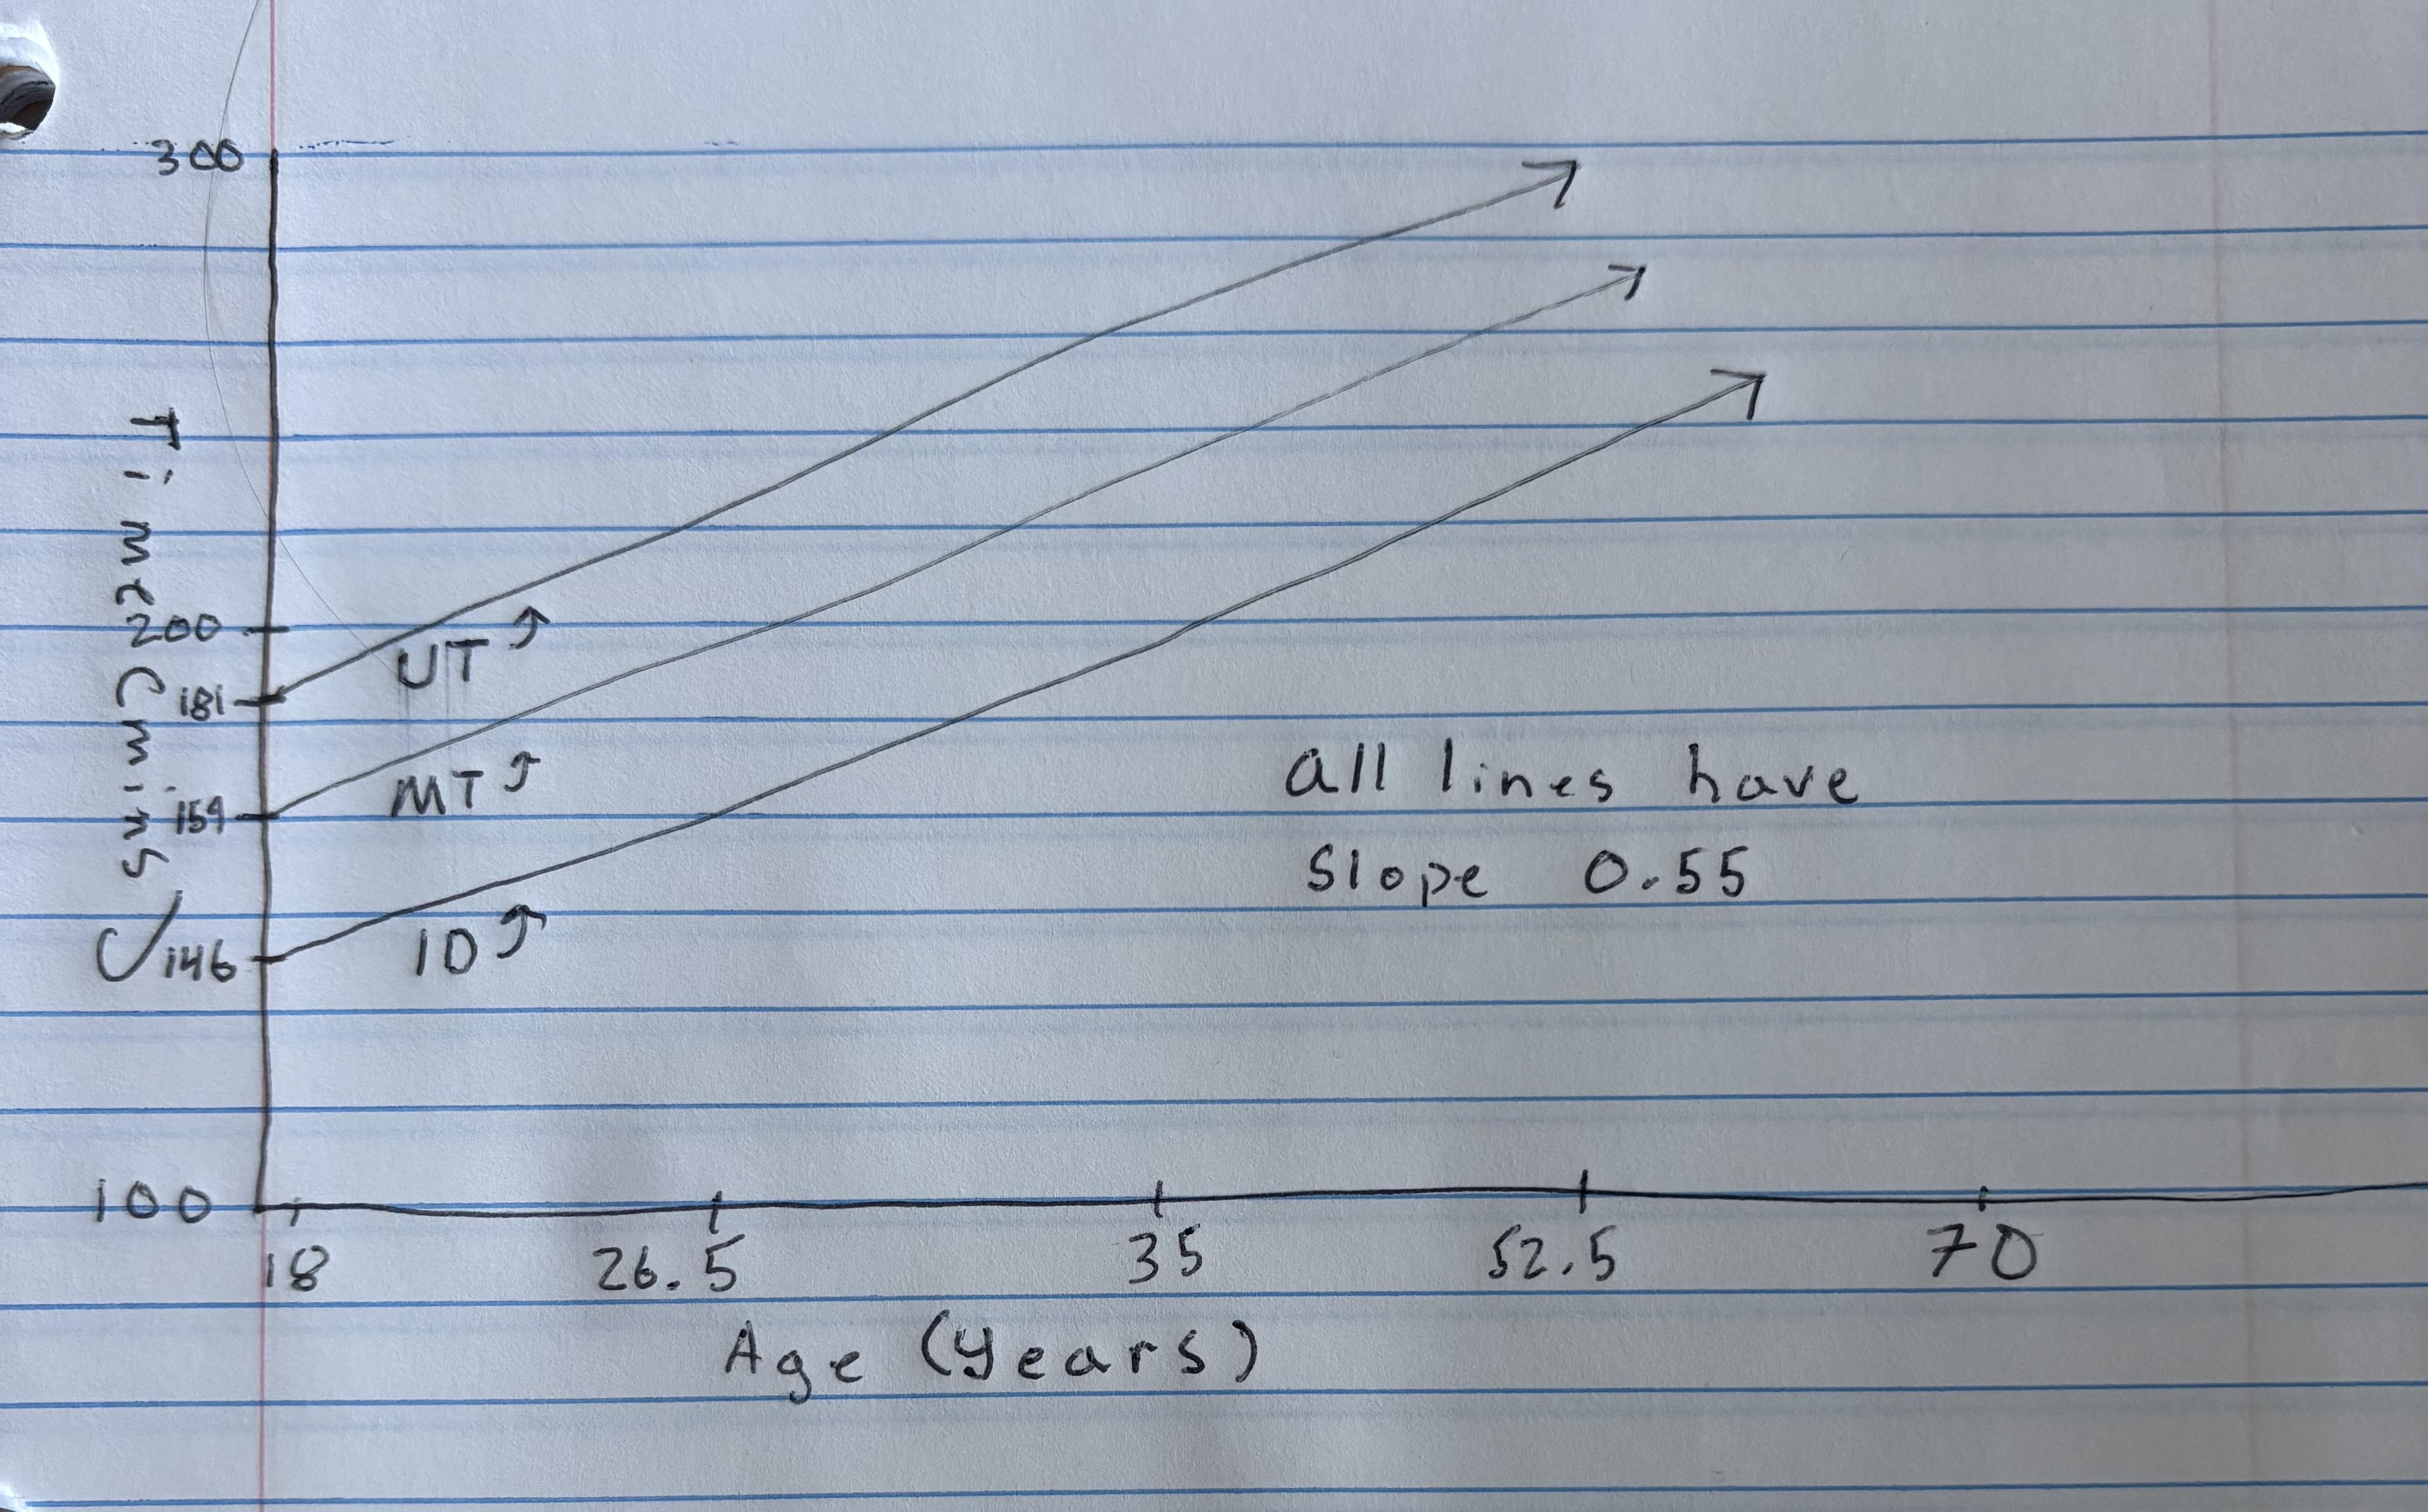 300
Time (mins)
200
181
159
146
100
UT
MT
ID
all lines have
slope 0.55
18
26.5
35
52.5
70
Age (Years)